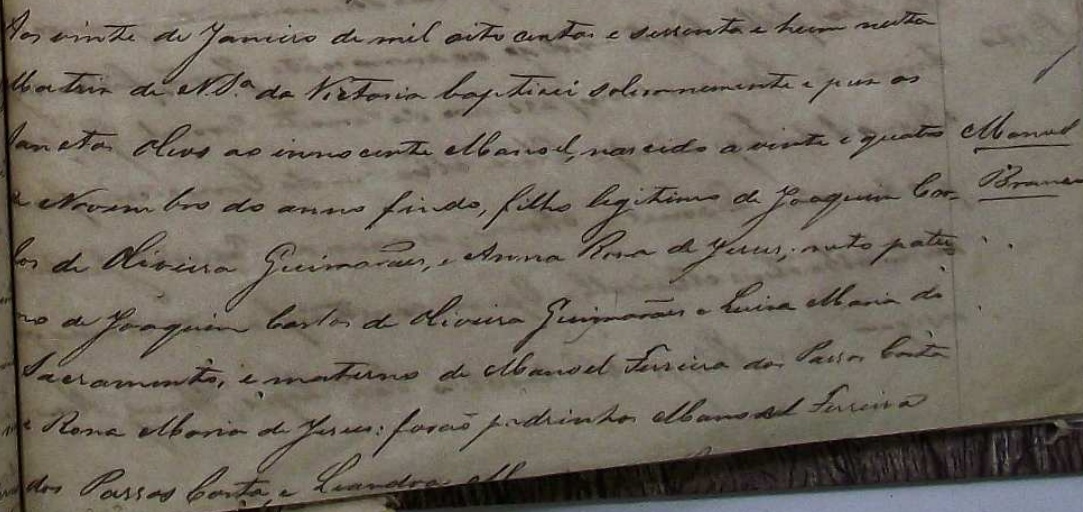 Aos vinte de Janeiro de mil oito centos e sessenta e hum nesta
Matriz de N. S.ª da Victoria baptisei solemnemente e puz os
Sanctos Oleos ao innocente Manoel, nascido a vinte e quatro
de Novembro do anno findo, filho legitimo de Joaquim Car-
los de Oliveira Guimarães, e Anna Rosa de Jesus; neto pater
no de Joaquim Carlos de Oliveira Guimarães e Luisa Maria do
Sacramento, e materno de Manoel Ferreira dos Passos Costa
e Rosa Maria de Jesus: forão padrinhos Manoel Ferreira
dos Passos Costa, e Leandra
Manoel
Branco